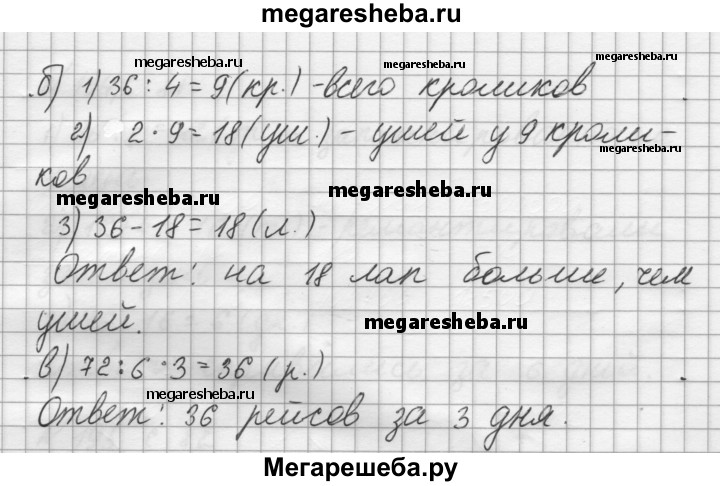 megaresheba.ru
megaresheba.ru megaresheba.ru megaresheba.ru
б) 1) 36 : 4 = 9 (кр.) - всего кроликов
2) 2 · 9 = 18 (уш.) - ушей у 9 кроли-
megaresheba.ru
ков
megaresheba.ru megaresheba.ru
3) 36 - 18 = 18 (л.)
Ответ: на 18 лап больше, чем
ушей.
megaresheba.ru
в) 72 : 6 · 3 = 36 (р.)
megaresheba.ru megaresheba.ru
Ответ: 36 рейсов за 3 дня.
Мегарешеба.ру